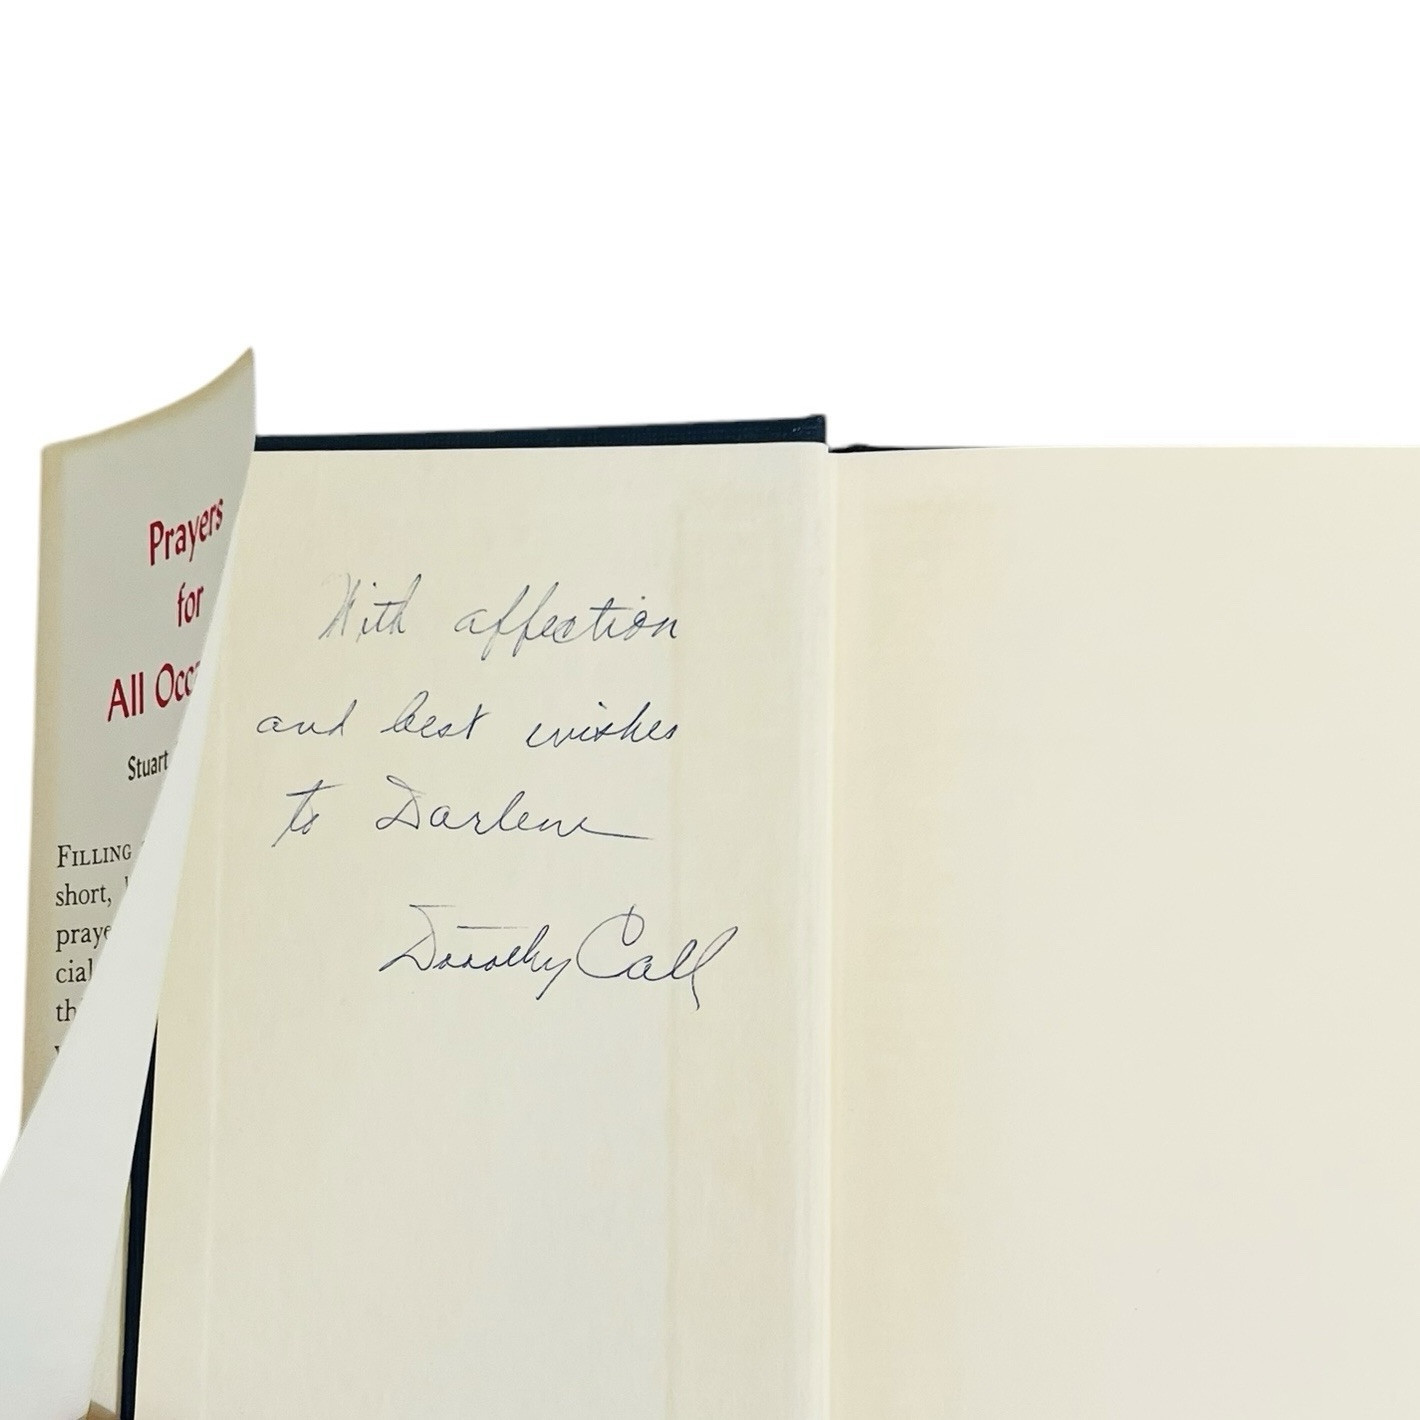 Prayers
for
All Occ
Stuart
FILLING
short,
praye
cial
th
With affection
and best wishes
to Darlene
Dorothy Call